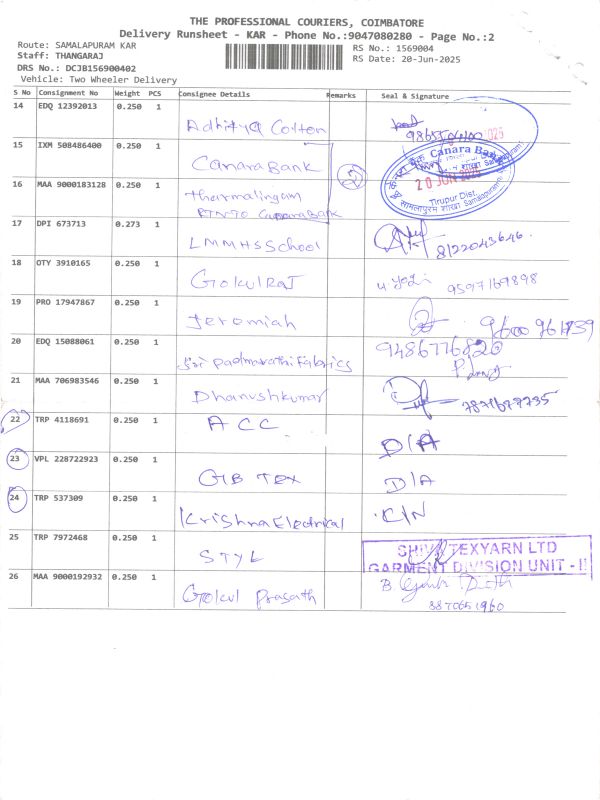 THE PROFESSIONAL COURIERS, COIMBATORE
Delivery Runsheet - KAR - Phone No.:9047080280 - Page No.:2
Route: SAMALAPURAM KAR
RS No.: 1569004
Staff: THANGARAJ
RS Date: 20-Jun-2025
DRS No.: DCJB156900402
Vehicle: Two Wheeler Delivery
S No Consignment No Weight PCS Consignee Details Remarks Seal & Signature
14 EDQ 12392013 0.250 1 Adhitya Cotton
15 IXM 508486400 0.250 1 Canara Bank
Canara Bank
20 JUN 2025
Tirupur Dist.
16 MAA 9000183128 0.250 1 Tharmalingam
Canara Bank
17 DPI 673713 0.273 1 LMMHSSchool 8122043646
18 OTY 3910165 0.250 1 Gokulraj 9597169898
19 PRO 17947867 0.250 1 Jeromiah
20 EDQ 15088061 0.250 1 Sri Padmavathi Fabrics 9486776826
21 MAA 706983546 0.250 1 Dhanushkumar
22 TRP 4118691 0.250 1 ACC D/A
23 VPL 228722923 0.250 1 GB TEX D/A
24 TRP 537309 0.250 1 Krishna Electrical C/N
25 TRP 7972468 0.250 1 STYL
SHIVA TEXYARN LTD
GARMENT DIVISION UNIT - II
26 MAA 9000192932 0.250 1 Gokul Prasath
8870651960